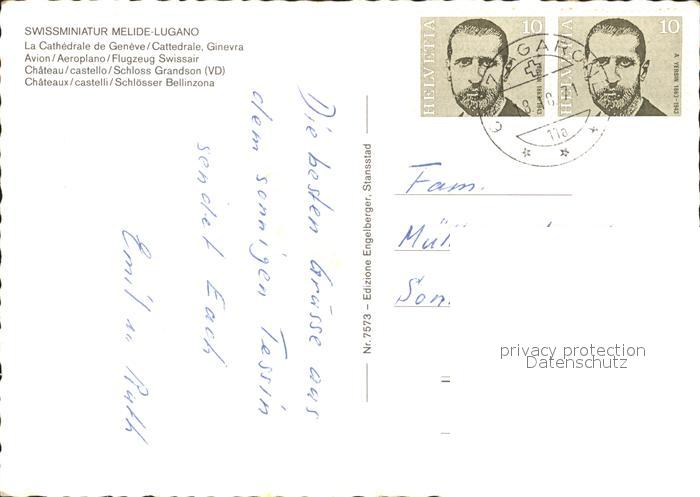 SWISSMINIATUR MELIDE-LUGANO
La Cathédrale de Genève/Cattedrale, Ginevra
Avion/Aeroplano/Flugzeug Swissair
Château/castello/Schloss Grandson (VD)
Châteaux/castelli/Schlösser Bellinzona
Die besten Grüsse aus
dem sonnigen Tessin
sendet Euch
Emil u. Ruth
Nr. 7573 – Edizione Engelberger, Stansstad
HELVETIA 10
A. YERSIN 1863-1943
HELVETIA 10
A. YERSIN 1863-1943
11a
Fam.
privacy protection
Datenschutz